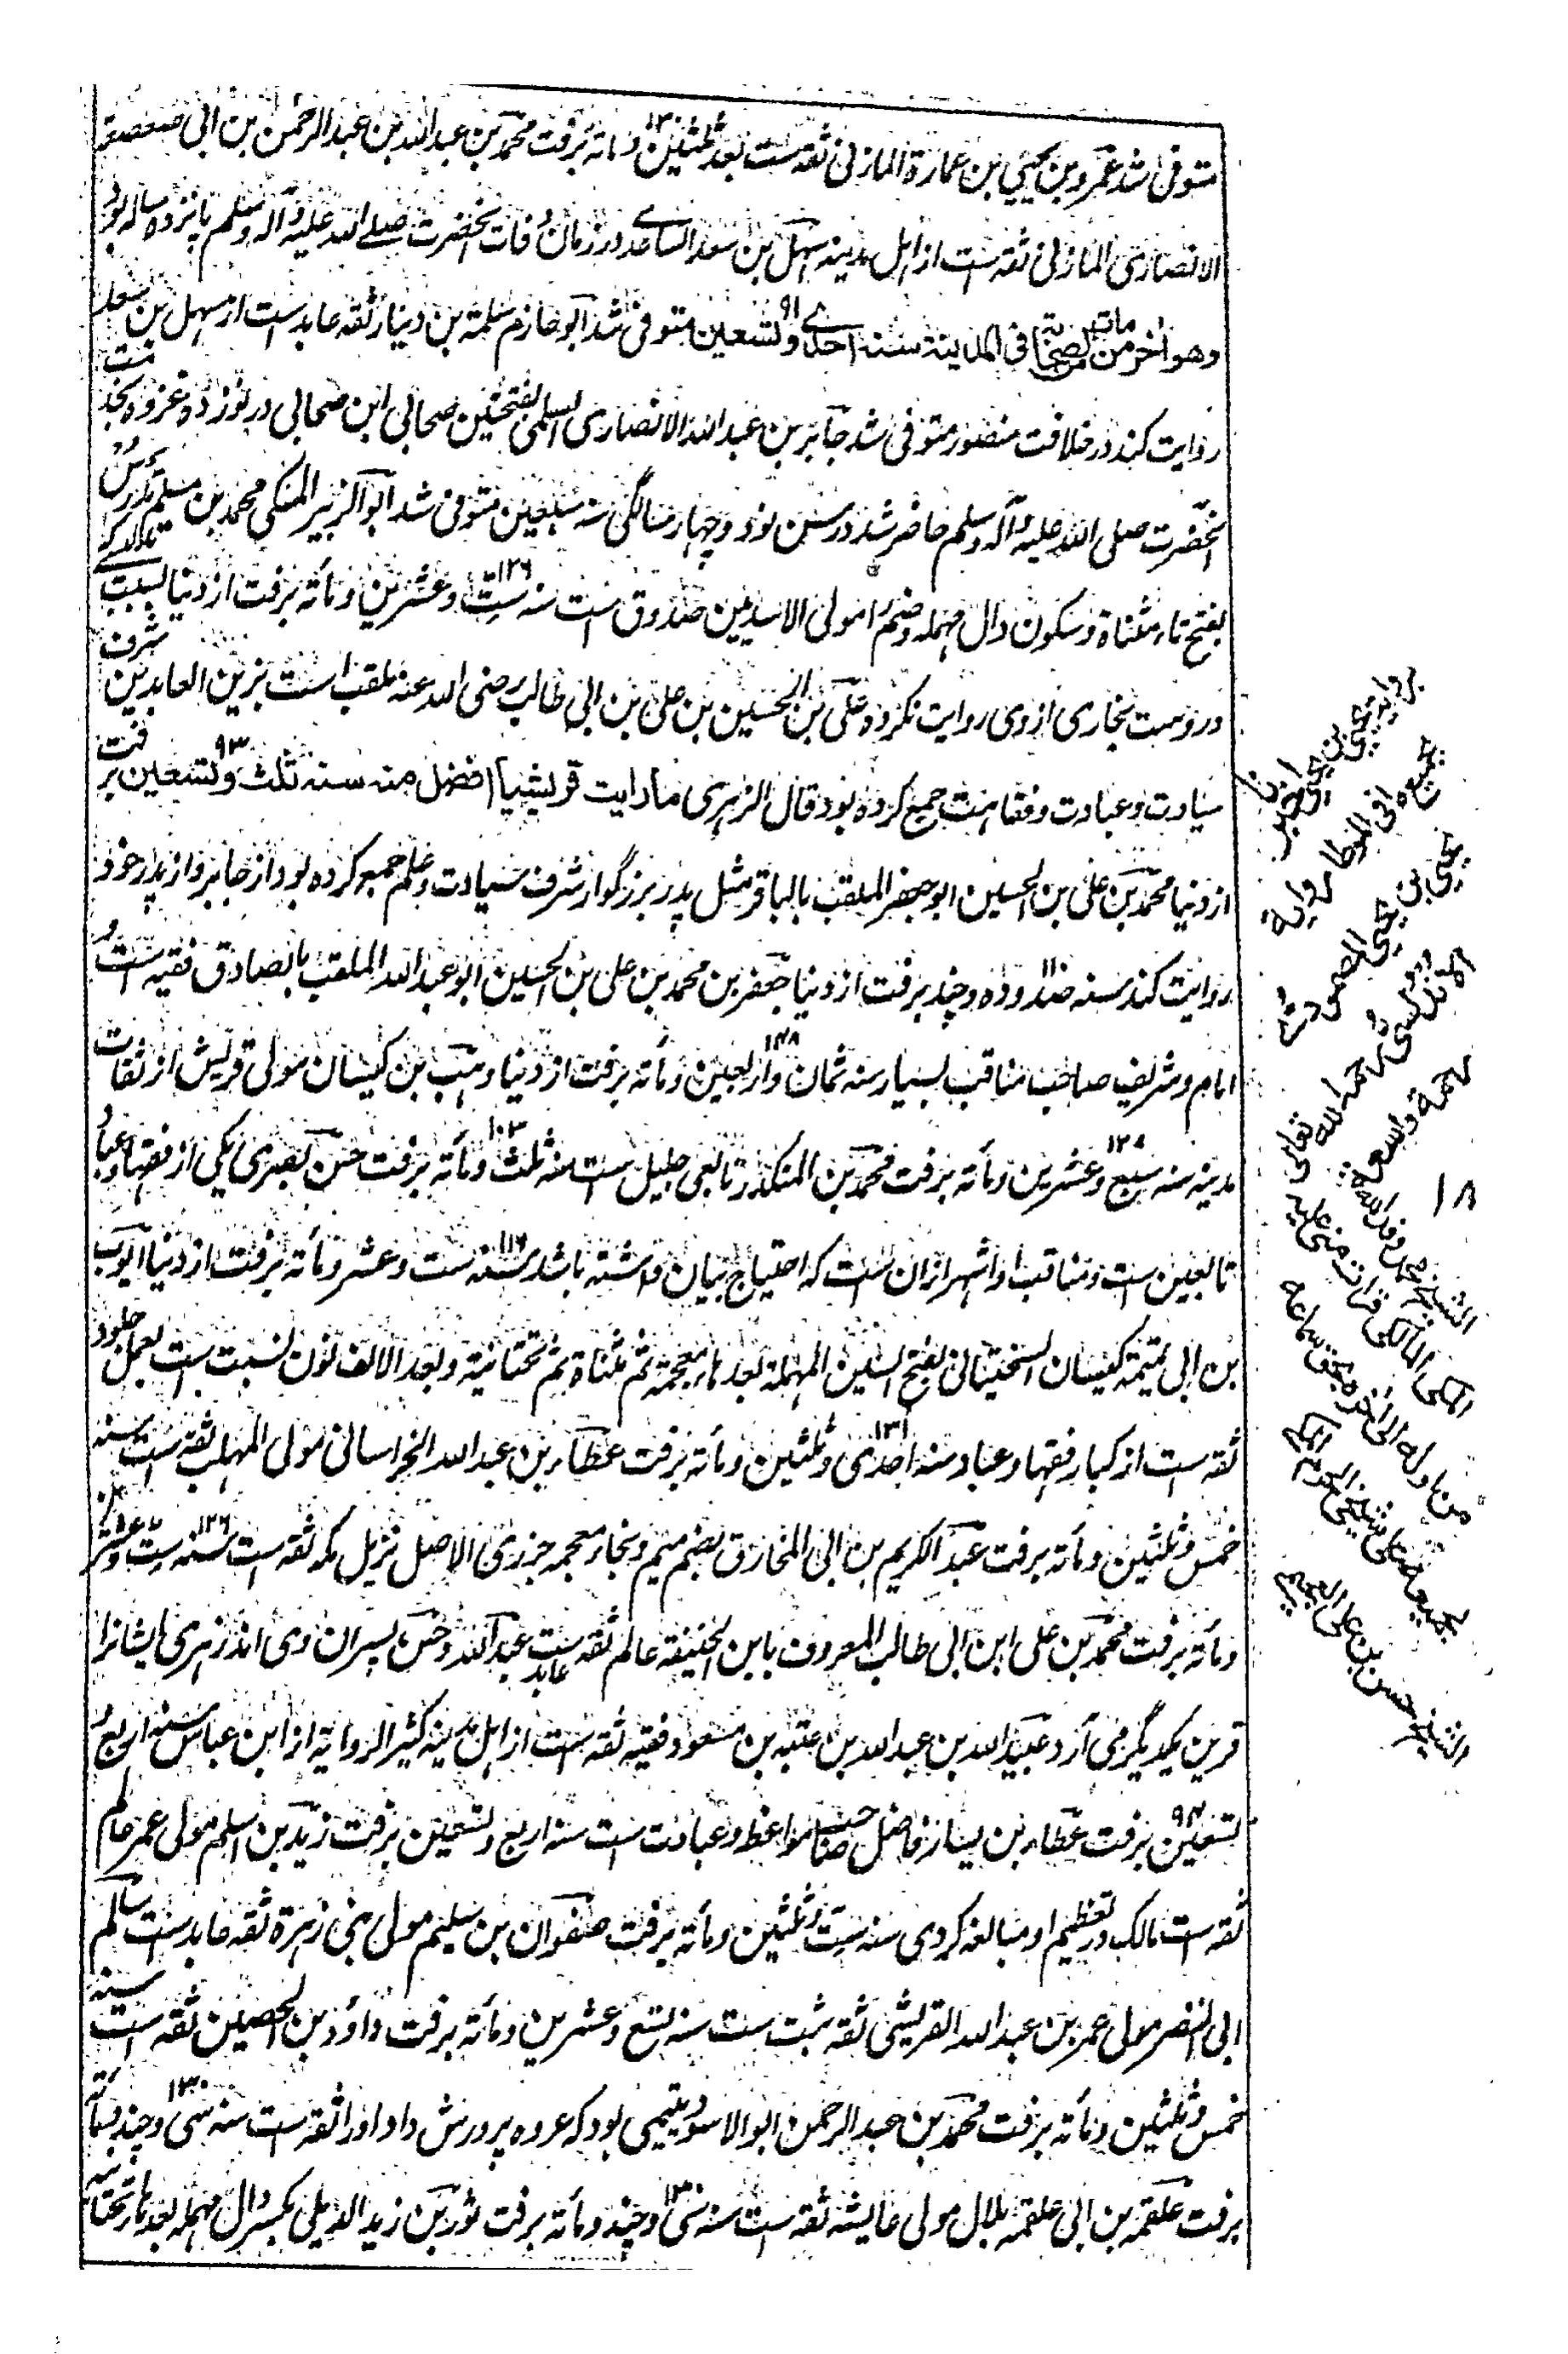 متوفی شد عمرو بن یحیی بن عمارة المازنی ثقه ست بعد ثلثین ۱۳۰ ومائه برفت محمد بن عبدالله بن عبدالرحمن بن ابی صعصعه
الانصاری المازنی ثقه است از اهل مدینه سهل بن سعد الساعدے در زمان وفات آنحضرت صلے الله علیه وآله وسلم پانزده ساله بود
وهو آخر من مات من الصحابة فی المدینة سنة احدے وتسعین ۹۱ متوفی شد ابو حازم سلمة بن دینار ثقه عابد ست از سهل بن سعد
روایت کند در خلافت منصور متوفی شد جابر بن عبدالله الانصاری السلمی بفتحتین صحابی ابن صحابی در نوزده غزوه بخدمت
آنحضرت صلی الله علیه وآله وسلم حاضر شد در سن نود وچهار سالگی سنه سبعین متوفی شد ابو الزبیر المکی محمد بن مسلم بن تدرس
بفتح تاء مثناة وسکون دال مهمله وضم را مولی الاسدیین صدوق ست سنه ست ۱۲۶ وعشرین ومائه برفت از دنیا بسبب تدلیسے که
دروست بخاری ازوی روایت نکرده علی بن الحسین بن علی بن ابی طالب رضی الله عنه ملقب است بزین العابدین شرف
سیادت وعبادت وفقاهت جمع کرده بود قال الزهری ما رایت قریشیا افضل منه سنه ثلث وتسعین ۹۳ برفت
از دنیا محمد بن علی بن الحسین ابو جعفر الملقب بالباقر مثل پدر بزرگوار شرف سیادت وعلم جمع کرده بود از جابر واز پدر خود
روایت کند بسنه صد وده وچند برفت از دنیا جعفر بن محمد بن علی بن الحسین ابو عبدالله الملقب بالصادق فقیه است و
امام وشریف صاحب مناقب بسیار سنه ثمان واربعین ۱۴۸ ومائه برفت از دنیا وهب بن کیسان مولی قریش از ثقات
مدینه سنه سبع وعشرین ومائه برفت محمد بن المنکدر تابعی جلیل ست سنه ثلث ومائه برفت حسن بصری یکی از فقها وعباد
تابعین ست ومناقب او اشهر ازان ست که احتیاج بیان داشته باشد سنه ست وعشر ۱۱۶ ومائه برفت از دنیا ایوب
بن ابی تمیمه کیسان السختیانی بفتح السین المهملة بعدها معجمة ثم مثناة ثم تحتانیة وبعد الالف نون نسبت است بعمل جلود
ثقه ست از کبار فقها وعباد سنه احدی وثلثین ۱۳۱ ومائه برفت عطاء بن عبدالله الخراسانی مولی المهلب ثقه ست سنه
خمس وثلثین ومائه برفت عبدالکریم بن ابی المخارق بضم میم وبخاء معجمه جزری الاصل نزیل مکه ثقه ست سنه ست وعشرین ۱۲۶
ومائه برفت محمد بن علی ابن ابی طالب المعروف بابن الحنیفة عالم ثقه عابد ست عبدالله وحسن پسران وی اند زهری ایشانرا
قرین یکدیگر می آرد عبیدالله بن عبدالله بن عتبه بن مسعود فقیه ثقه ست از اهل مدینه کثیر الروایة از ابن عباس سنه اربع و
تسعین ۹۴ برفت عطاء بن یسار فاضل صاحب مواعظ وعبادت ست سنه اربع وتسعین برفت زید بن اسلم مولی عمر عالم
ثقه ست مالک در تعظیم او مبالغه کردی سنه ست وثلثین ومائه برفت صفوان بن سلیم مولی بنی زهرة ثقه عابد ست سالم
ابی النضر مولی عمر بن عبدالله القریشی ثقه ثبت ست سنه تسع وعشرین ومائه برفت داؤد بن الحصین ثقه است سنه
خمس وثلثین ومائه برفت محمد بن عبدالرحمن ابو الاسود یتیمی بود که عروه پرورش داد اورا ثقه ست سنه سی ۱۳۰ وچند ومائه
برفت علقمه بن ابی علقمه بلال مولی عایشه ثقه ست سنه سی ۱۳۰ وچند ومائه برفت ثور بن زید الدیلی بکسر دال مهمله بعدها تحتانیه
جمیعه فی الموطا روایة
یحیی بن یحیی المصمودی
الاندلسی رحمه الله تعالی
رحمة واسعة
۱۸
الشیخ محمد وفد الله
المکی المالکی قراءة منی علیه
من اوله الی آخره بحق سماعه
لجمیعه علی شیخی الحرم المکی
الشیخ حسن بن علی العجیمی